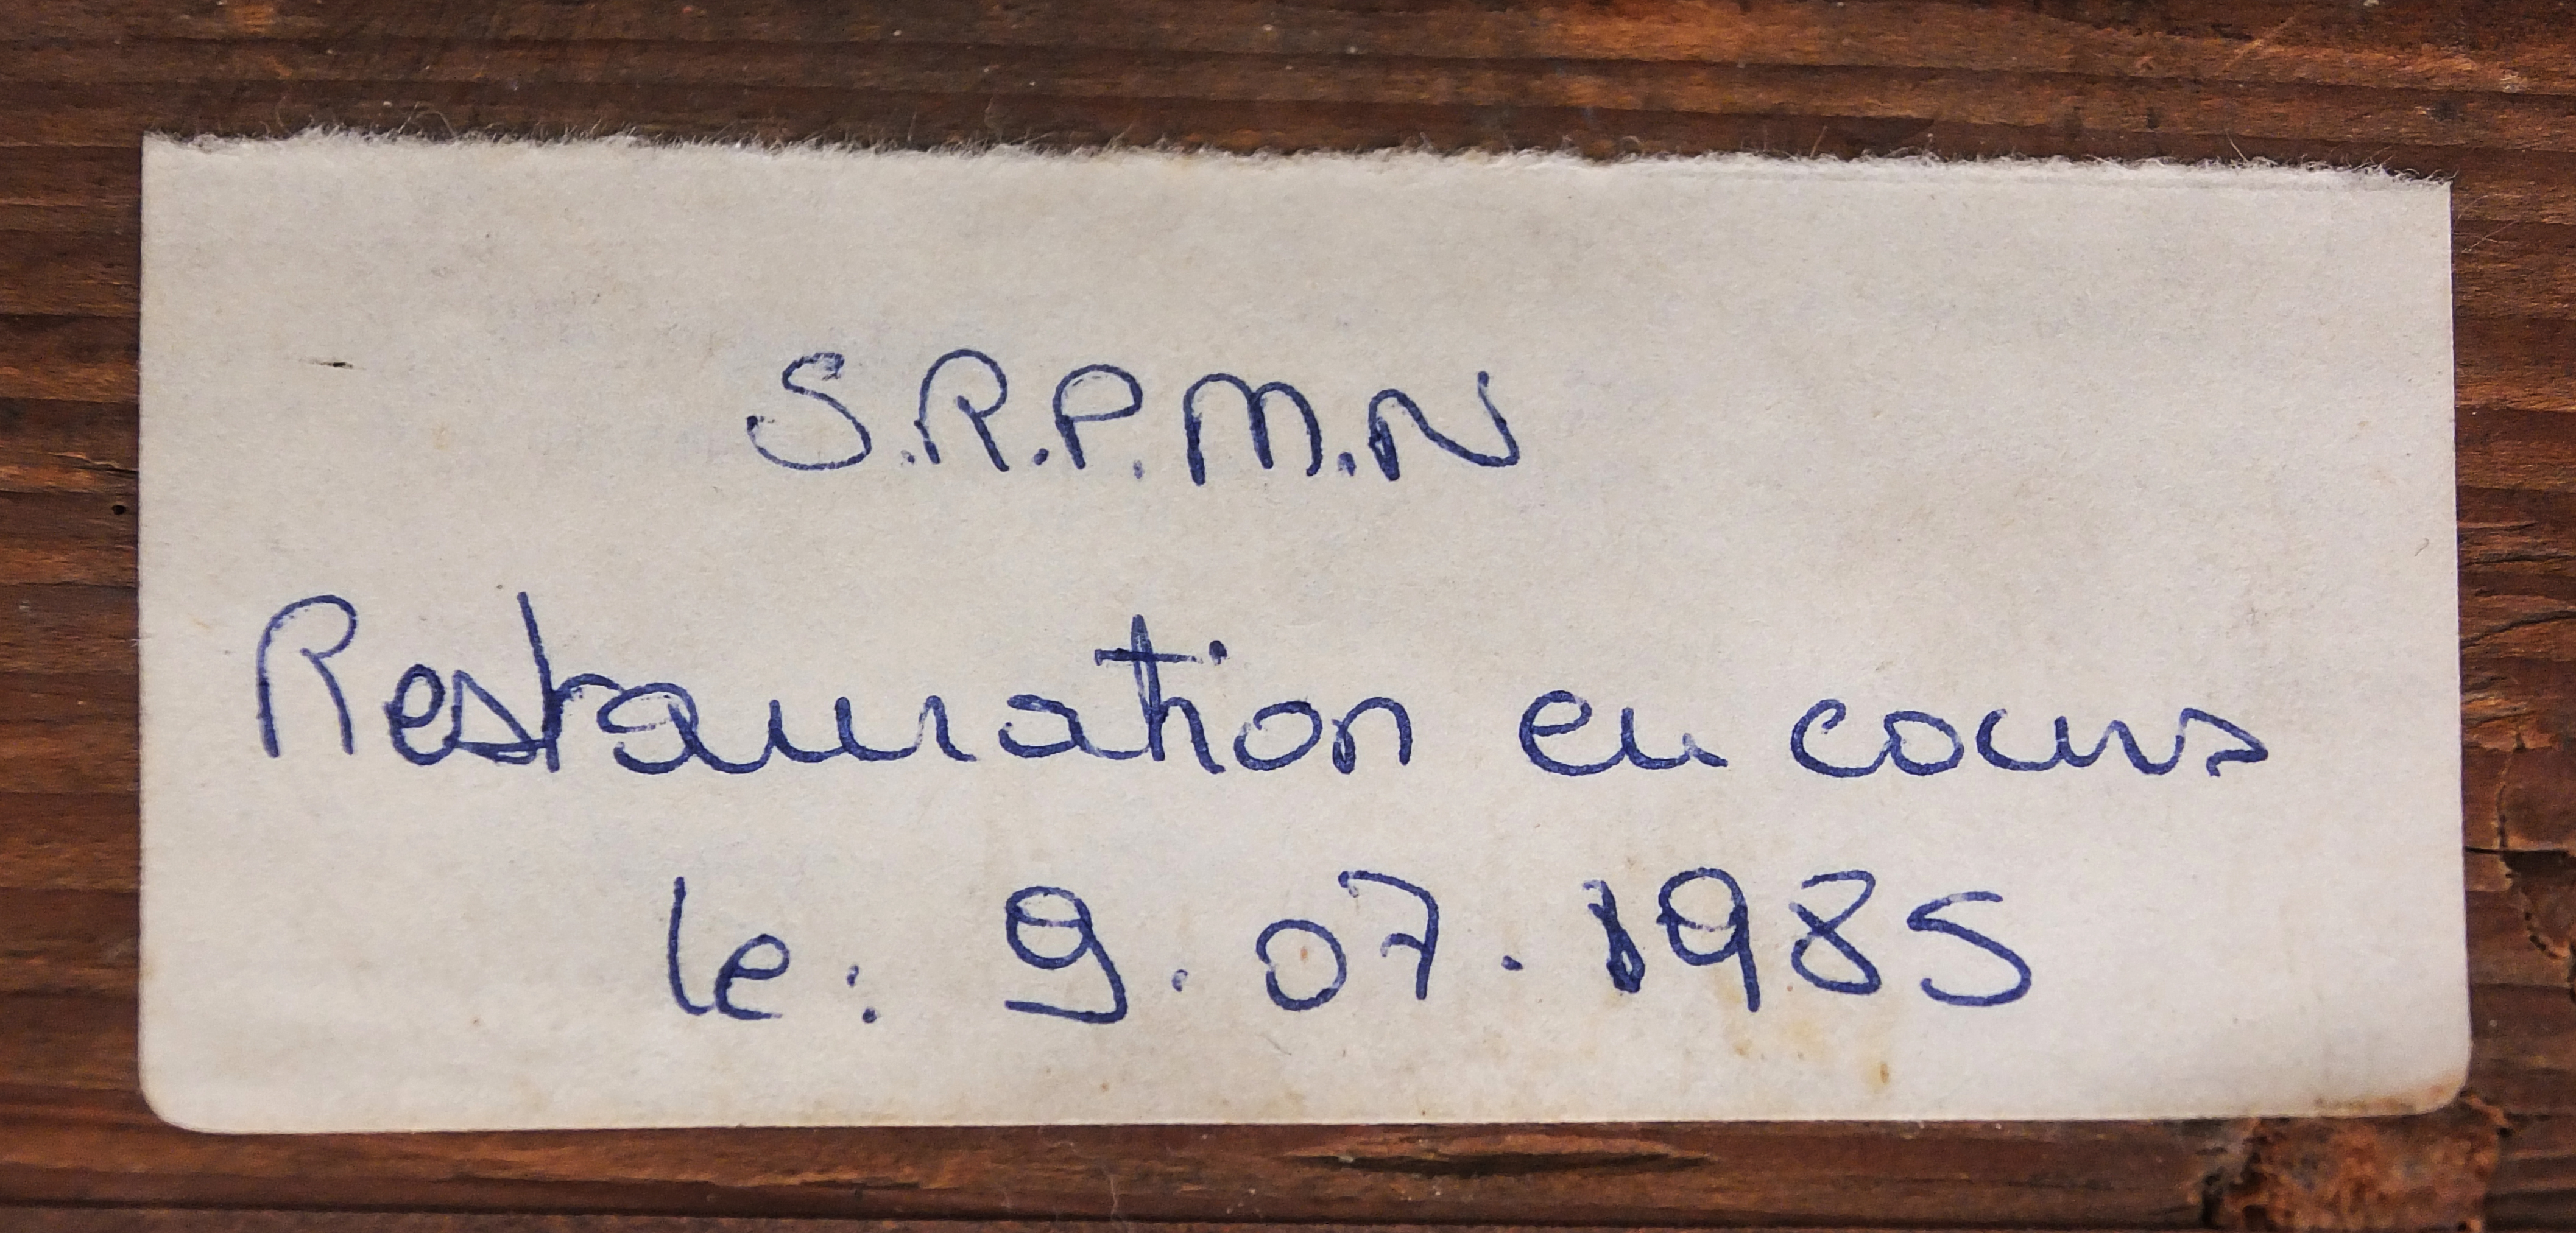 S.R.P.M.N
Restauration en cours
le : 9.07.1985